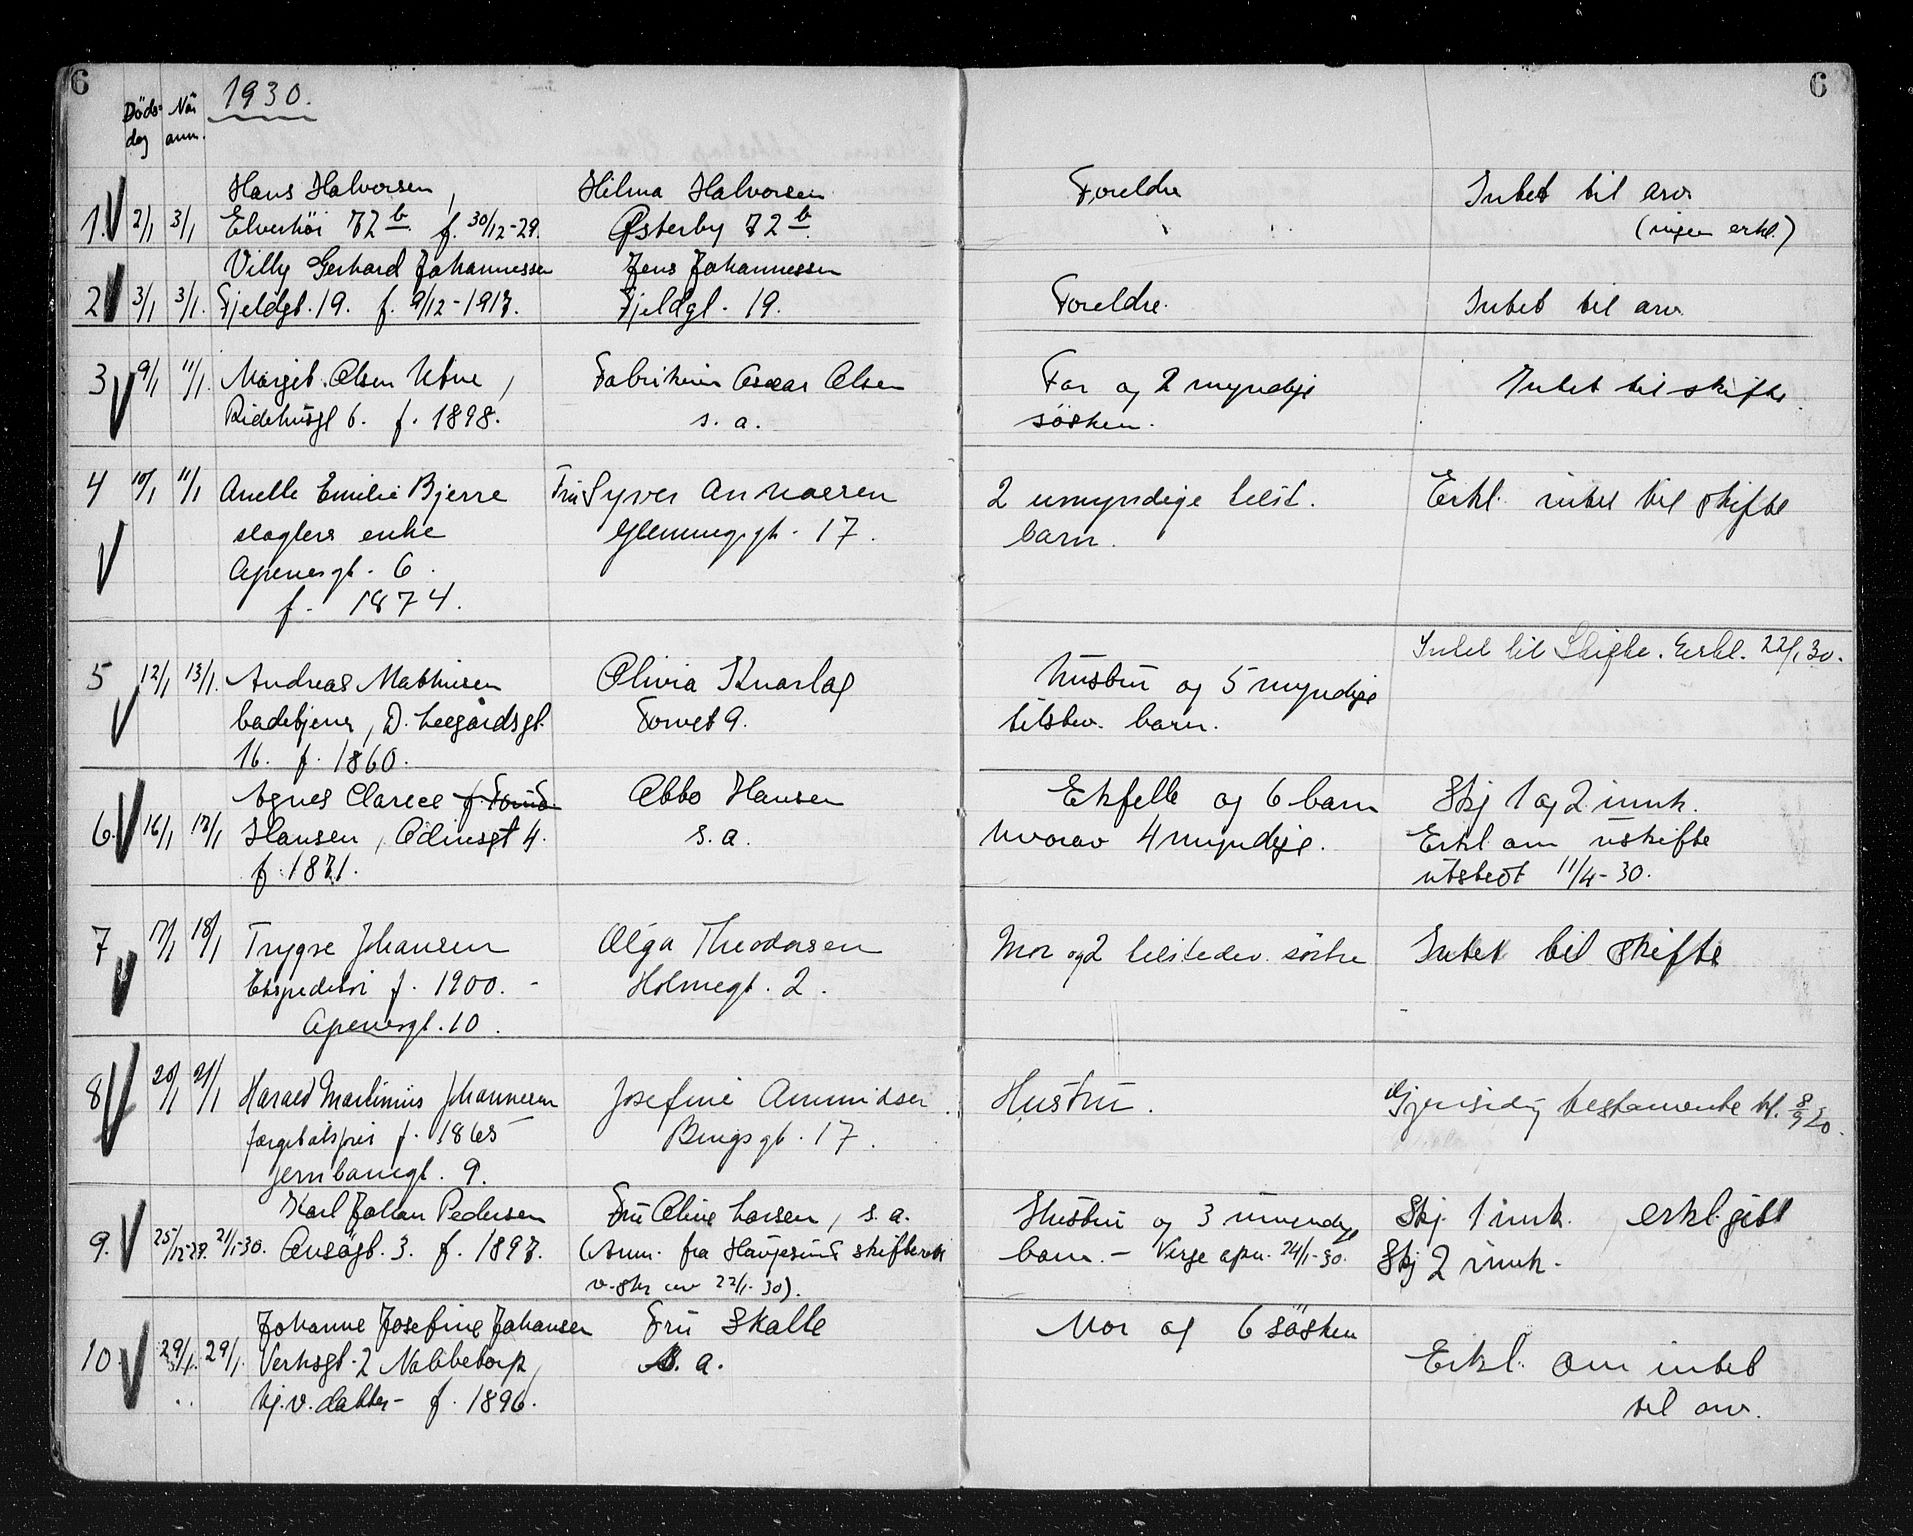 6
6
1930.
Døds-
dag
Når
anm.
1. 2/1 3/1 Hans Halvorsen,
Elverhöi 72 b. f. 30/12-29.
Hilma Halvorsen
Østerby 72 b.
Foreldre
Intet til arv
(ingen erkl.)
2 3/1 3/1. Villy Gerhard Johannessen
Fjeldgt. 19. f. 9/12-1917.
Jens Johannessen
Fjeldgt. 19.
Foreldre.
Intet til arv
3 9/1 11/1. Margit Olsen Utne,
Ridehusgt 6. f. 1898.
Fabrikeier Oscar Olsen
s. a.
Far og 2 myndige
søsken.
Intet til skifte.
4 10/1 11/1 Anette Emilie Bjerre
slagters enke
Apenesgt. 6.
f. 1874.
Fru Syver
Glemmegt. 17.
2 umyndige tilst.
barn.
Erkl. intet til skifte
5 12/1 13/1. Andreas Mathisen
badetjener, D. Leegårdsgt.
16. f. 1860.
Olivia
Torvet 9.
Hustru og 5 myndige
tilstev. barn.
Intet til Skifte. Erkl. 22/1 30.
6. 16/1 17/1 Agnes Clarece
Hansen, Odinsgt 4.
f. 1871.
Abbo Hansen
s. a.
Ektfelle og 6 barn
hvorav 4 myndige.
Skj 1 og 2 innk.
Erkl om uskifte
utstedt 11/4-30.
7 17/1 18/1 Trygve Johansen
Ekspeditør f. 1900. -
Apenesgt. 10.
Olga Theodorsen
Holmegt. 2.
Mor og 2 tilstedev. søstre
Intet til skifte
8 20/1 21/1 Harald Martinius Johannesen
f. 1865
Jernbanegt. 9.
Josefine Amundsen.
Bingsgt. 17.
Hustru.
Gjensidig testamente 8/9 20.
9. 25/12-29. 21/1-30. Karl Johan Pedersen
f. 1897.
Fru Oline Larsen, s. a.
(Anm. fra Haugesund skifterett
v. skr av 22/1-30).
Hustru og 3 umyndige
barn - Verge opn. 24/1-30.
Skj. 1 innk. erkl. gitt
Skj 2 innk.
10. 29/1. 29/1. Johanne Josefine Johansen
Verksgt. 2 Nabbetorp,
hj. v. datter - f. 1896.
Fru Skalle
s. a.
Mor og 6 søsken
Erkl. om intet
til arv.